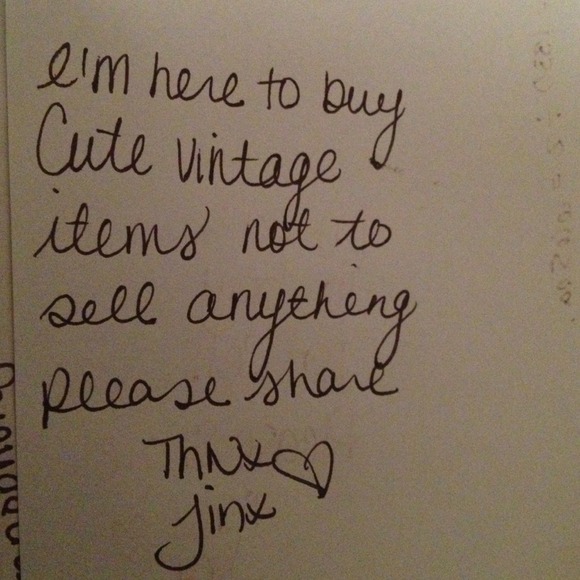 I'm here to buy
Cute vintage
items not to
sell anything
please share
Thnx♡
Jinx